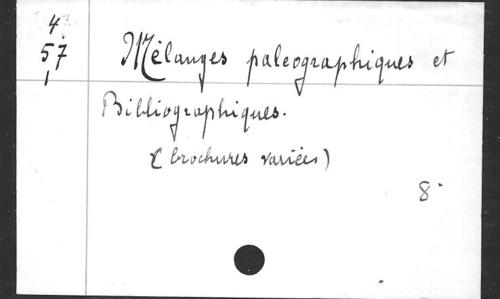 4
57
1
Mélanges paleographiques et
Bibliographiques.
(brochures variées)
8°